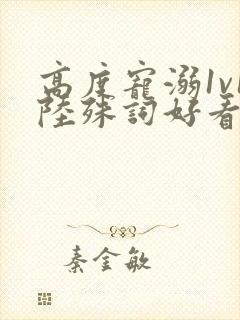 高度寵溺1v1
陸殊詞好看
秦金敏